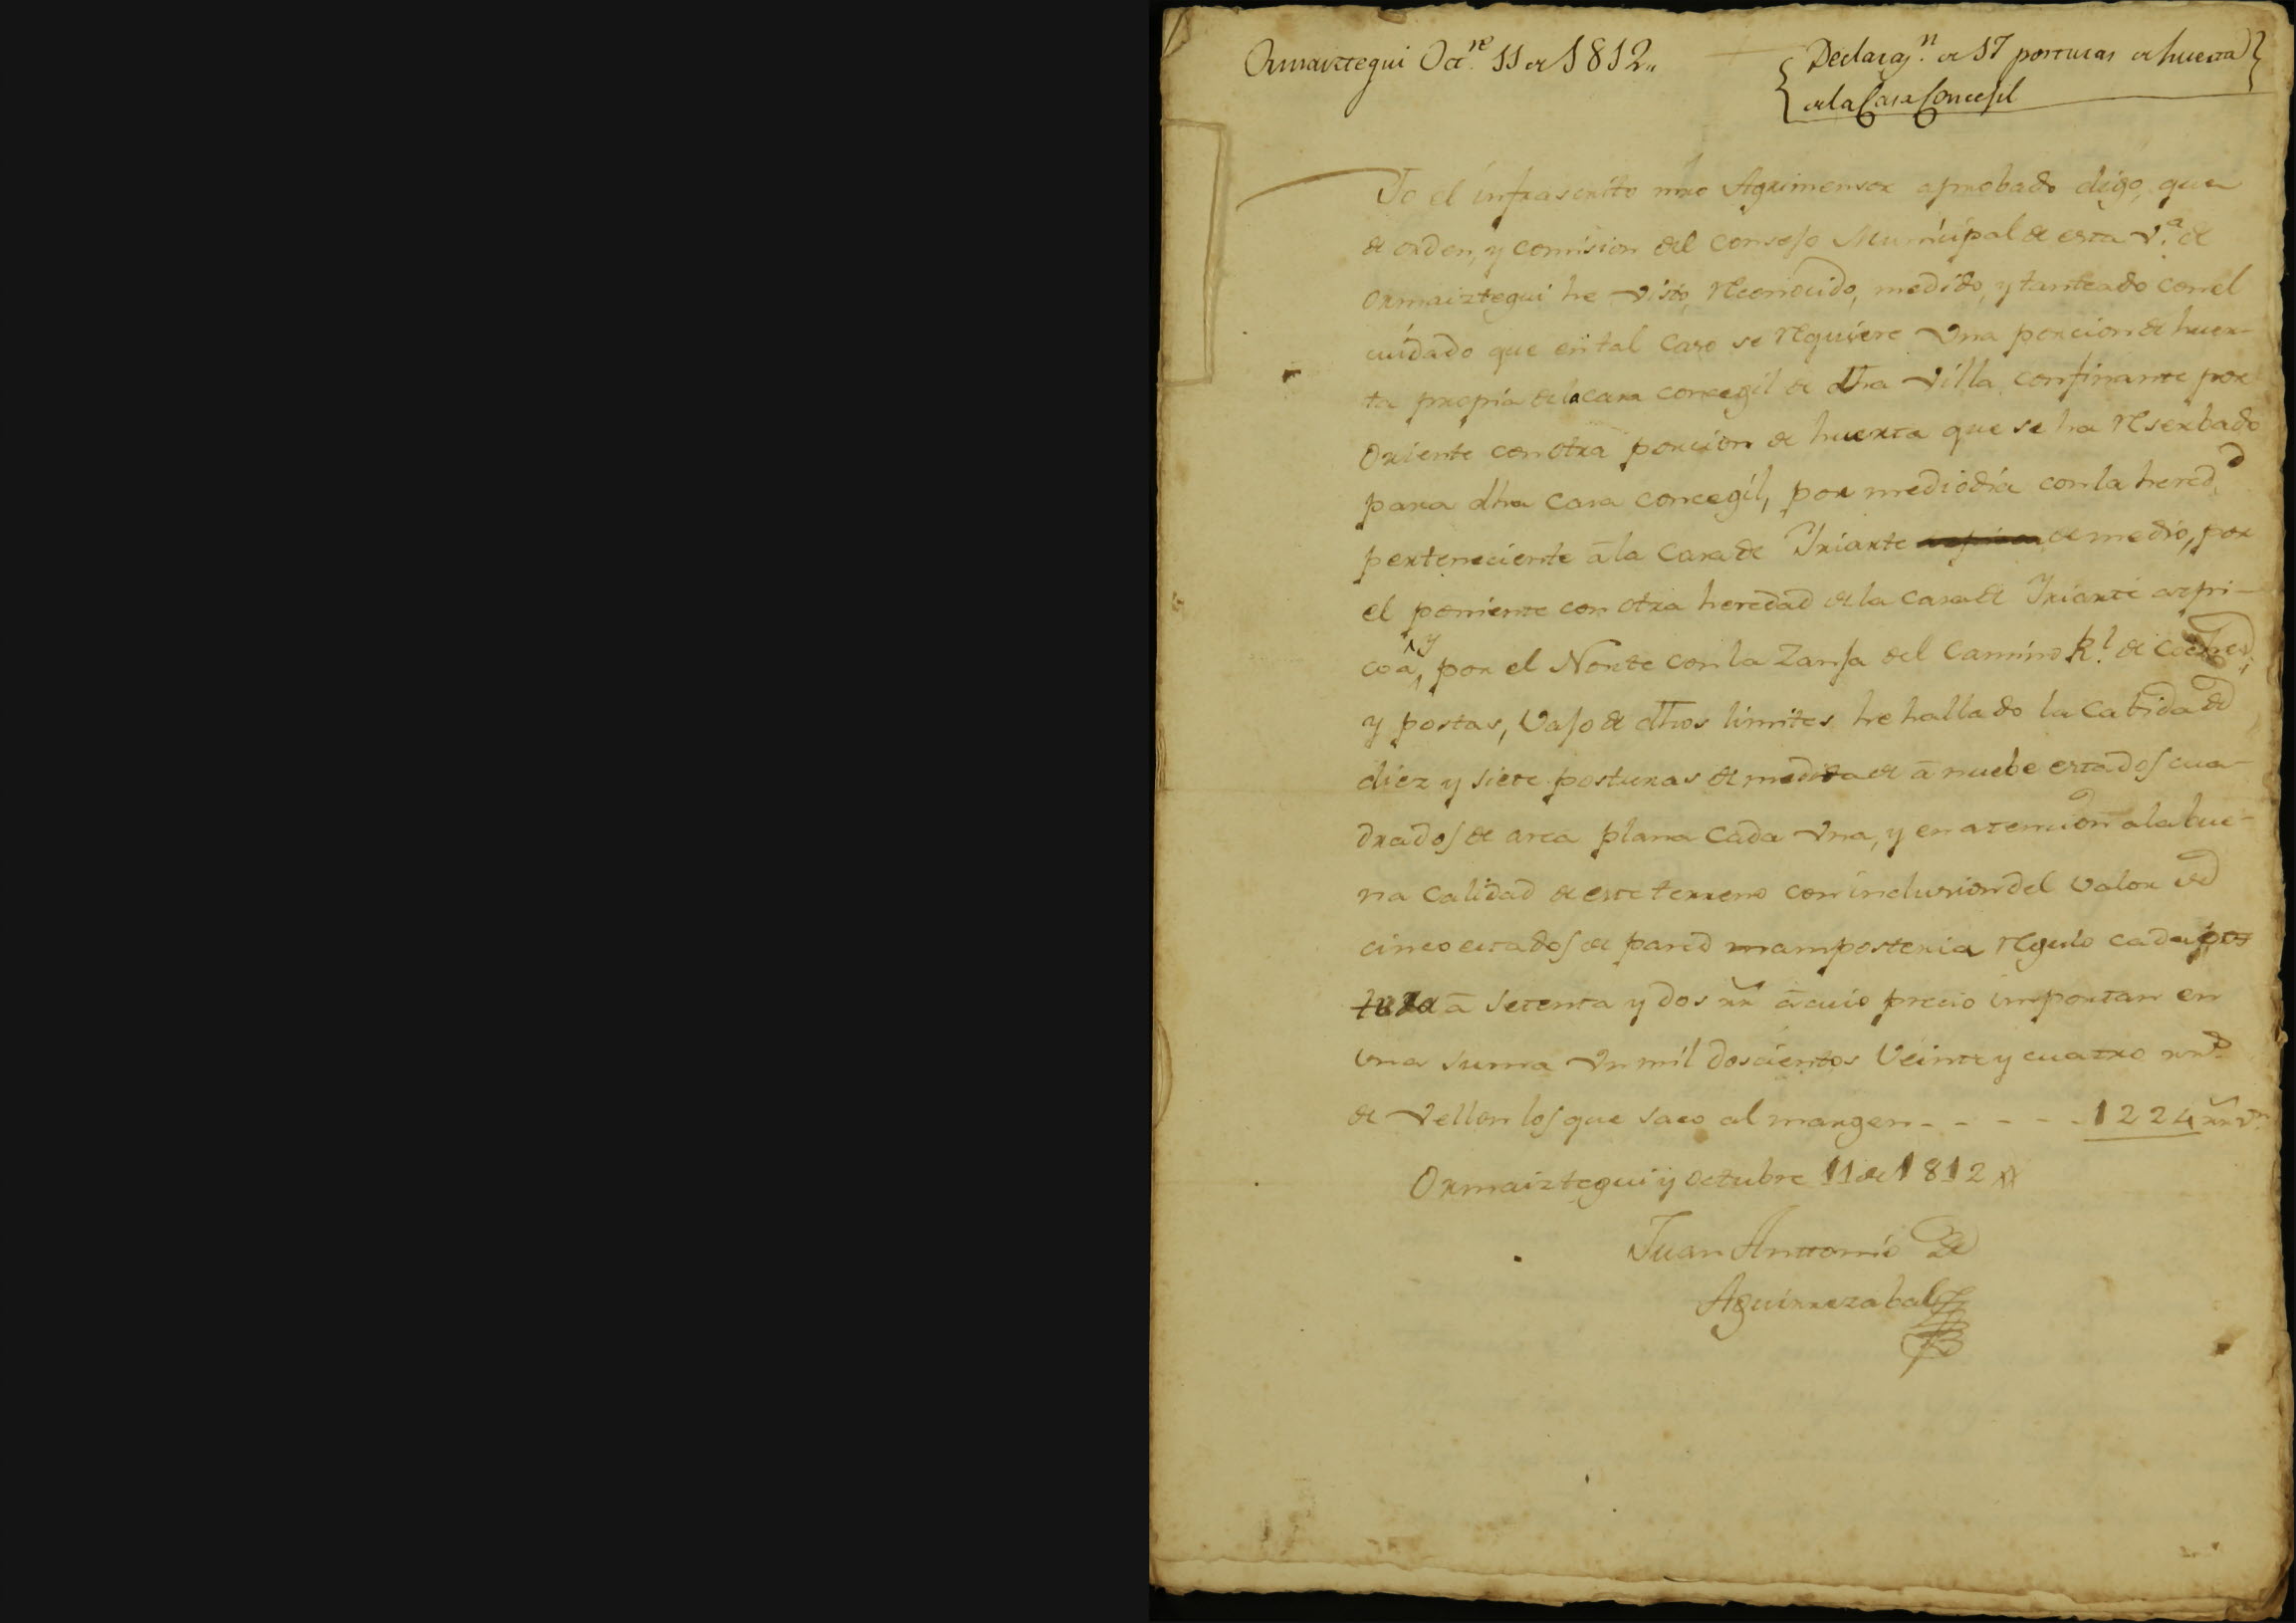 Ormaiztegui Oct.re 11 de 1812,,
Declaraz.n de 17 posturas de huerta
de la Casa Concejil
Yo el infrascrito mro Agrimensor aprobado digo, que
de orden, y comision del Consejo Municipal de esta V.a de
Ormaiztegui he visto, reconocido, medido, y tanteado con el
cuidado que en tal caso se requiere una porcion de huer-
ta propia de la casa concegil de dha villa confinante por
Oriente con otra porcion de huerta que se ha reserbado
para dha casa concegil, por mediodia con la hered.d
perteneciente â la Casa de Yriarte de medio, por
el poniente con otra heredad de la casa de Yriarte azpi-
coa, y por el Norte con la Zanja del Camino R.l de coches,
y postas, vajo de dhos limites he hallado la cabida de
diez y siete posturas de medida de â nuebe estados cua-
drados de area plana cada una, y en atencion a la bue-
na calidad de este terreno con inclusion del valor de
cinco estados de pared mamposteria regulo cada pos
tura â setenta y dos rr â cuio precio importan en
una suma un mil doscientos veinte y cuatro rr.s
de vellon los que saco al margen - - - - - 1224 rr v.n
Ormaiztegui y octubre 11 de 1812
Juan Antonio de
Aguirrezabal